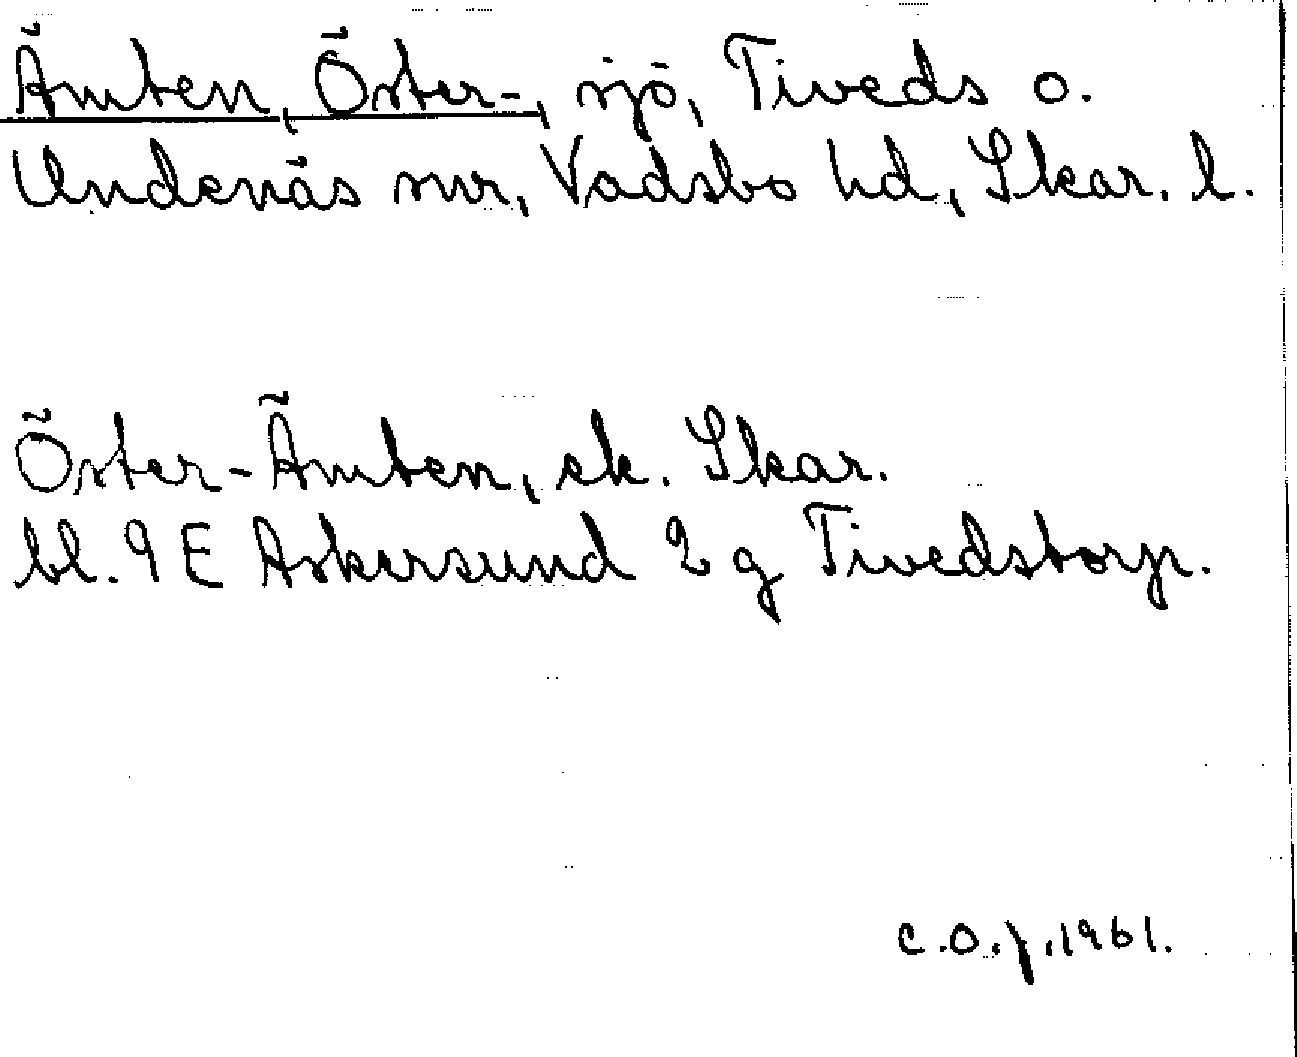 Ämten, Öster-, sjö, Tiveds o.
Undenäs snr, Vadsbo hd, Skar. l.
Öster-Ämten, ek. Skar.
bl. 9 E Askersund 2 g Tivedstorp.
C.O.f. 1961.